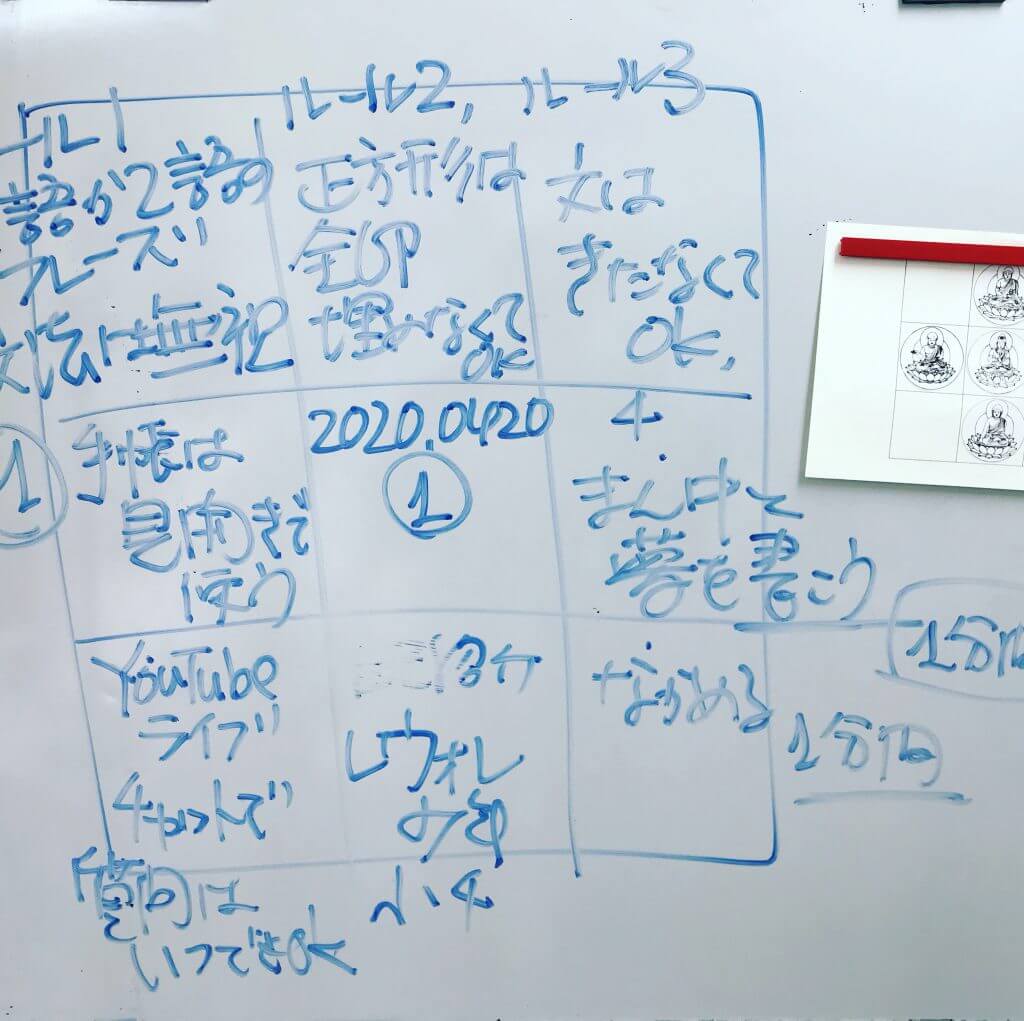 ール1
語か2語の
フレーズ
文法は無視
ルール2,
正方形は
全部
埋めなくて
OK
ルール3
文は
きたなくて
OK,
1
手帳は
見開きで
使う
2020.0420
1
4
まん中て
夢を書こう
1分間
YouTube
ライブ
チャットで
質問は
いつでもOK
ながめる
1分間